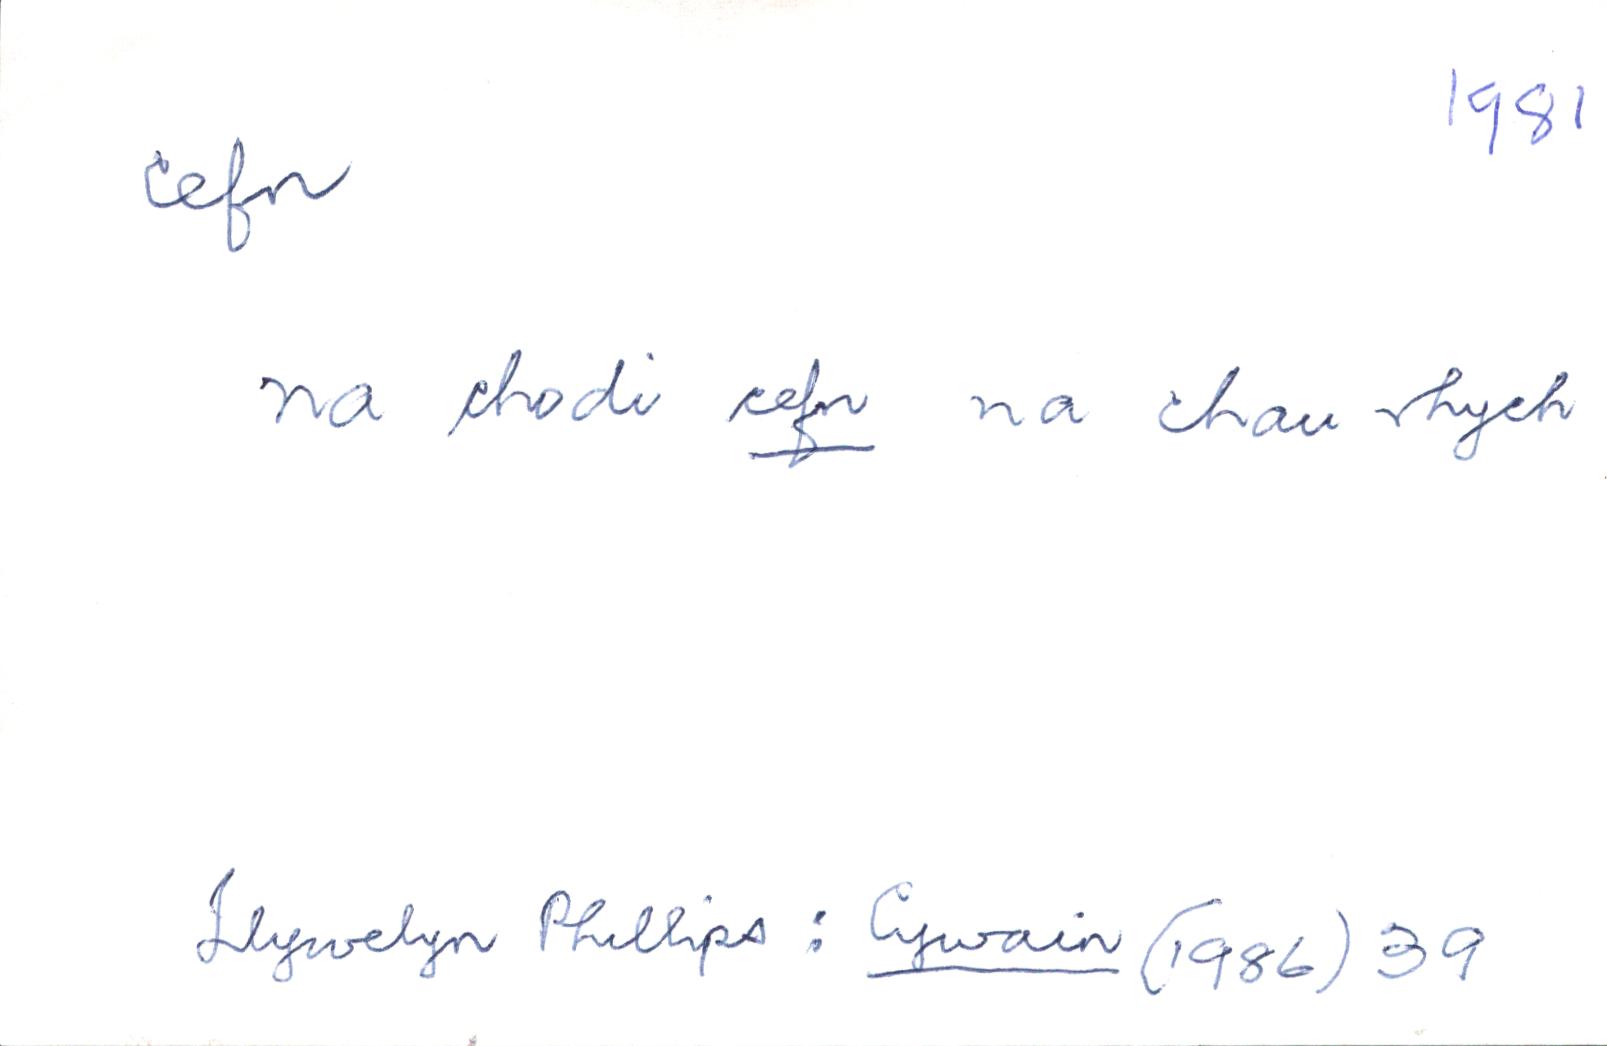 1981
cefn
na chodi cefn na chau rhych
Llywelyn Phillips : Cywain (1986) 39